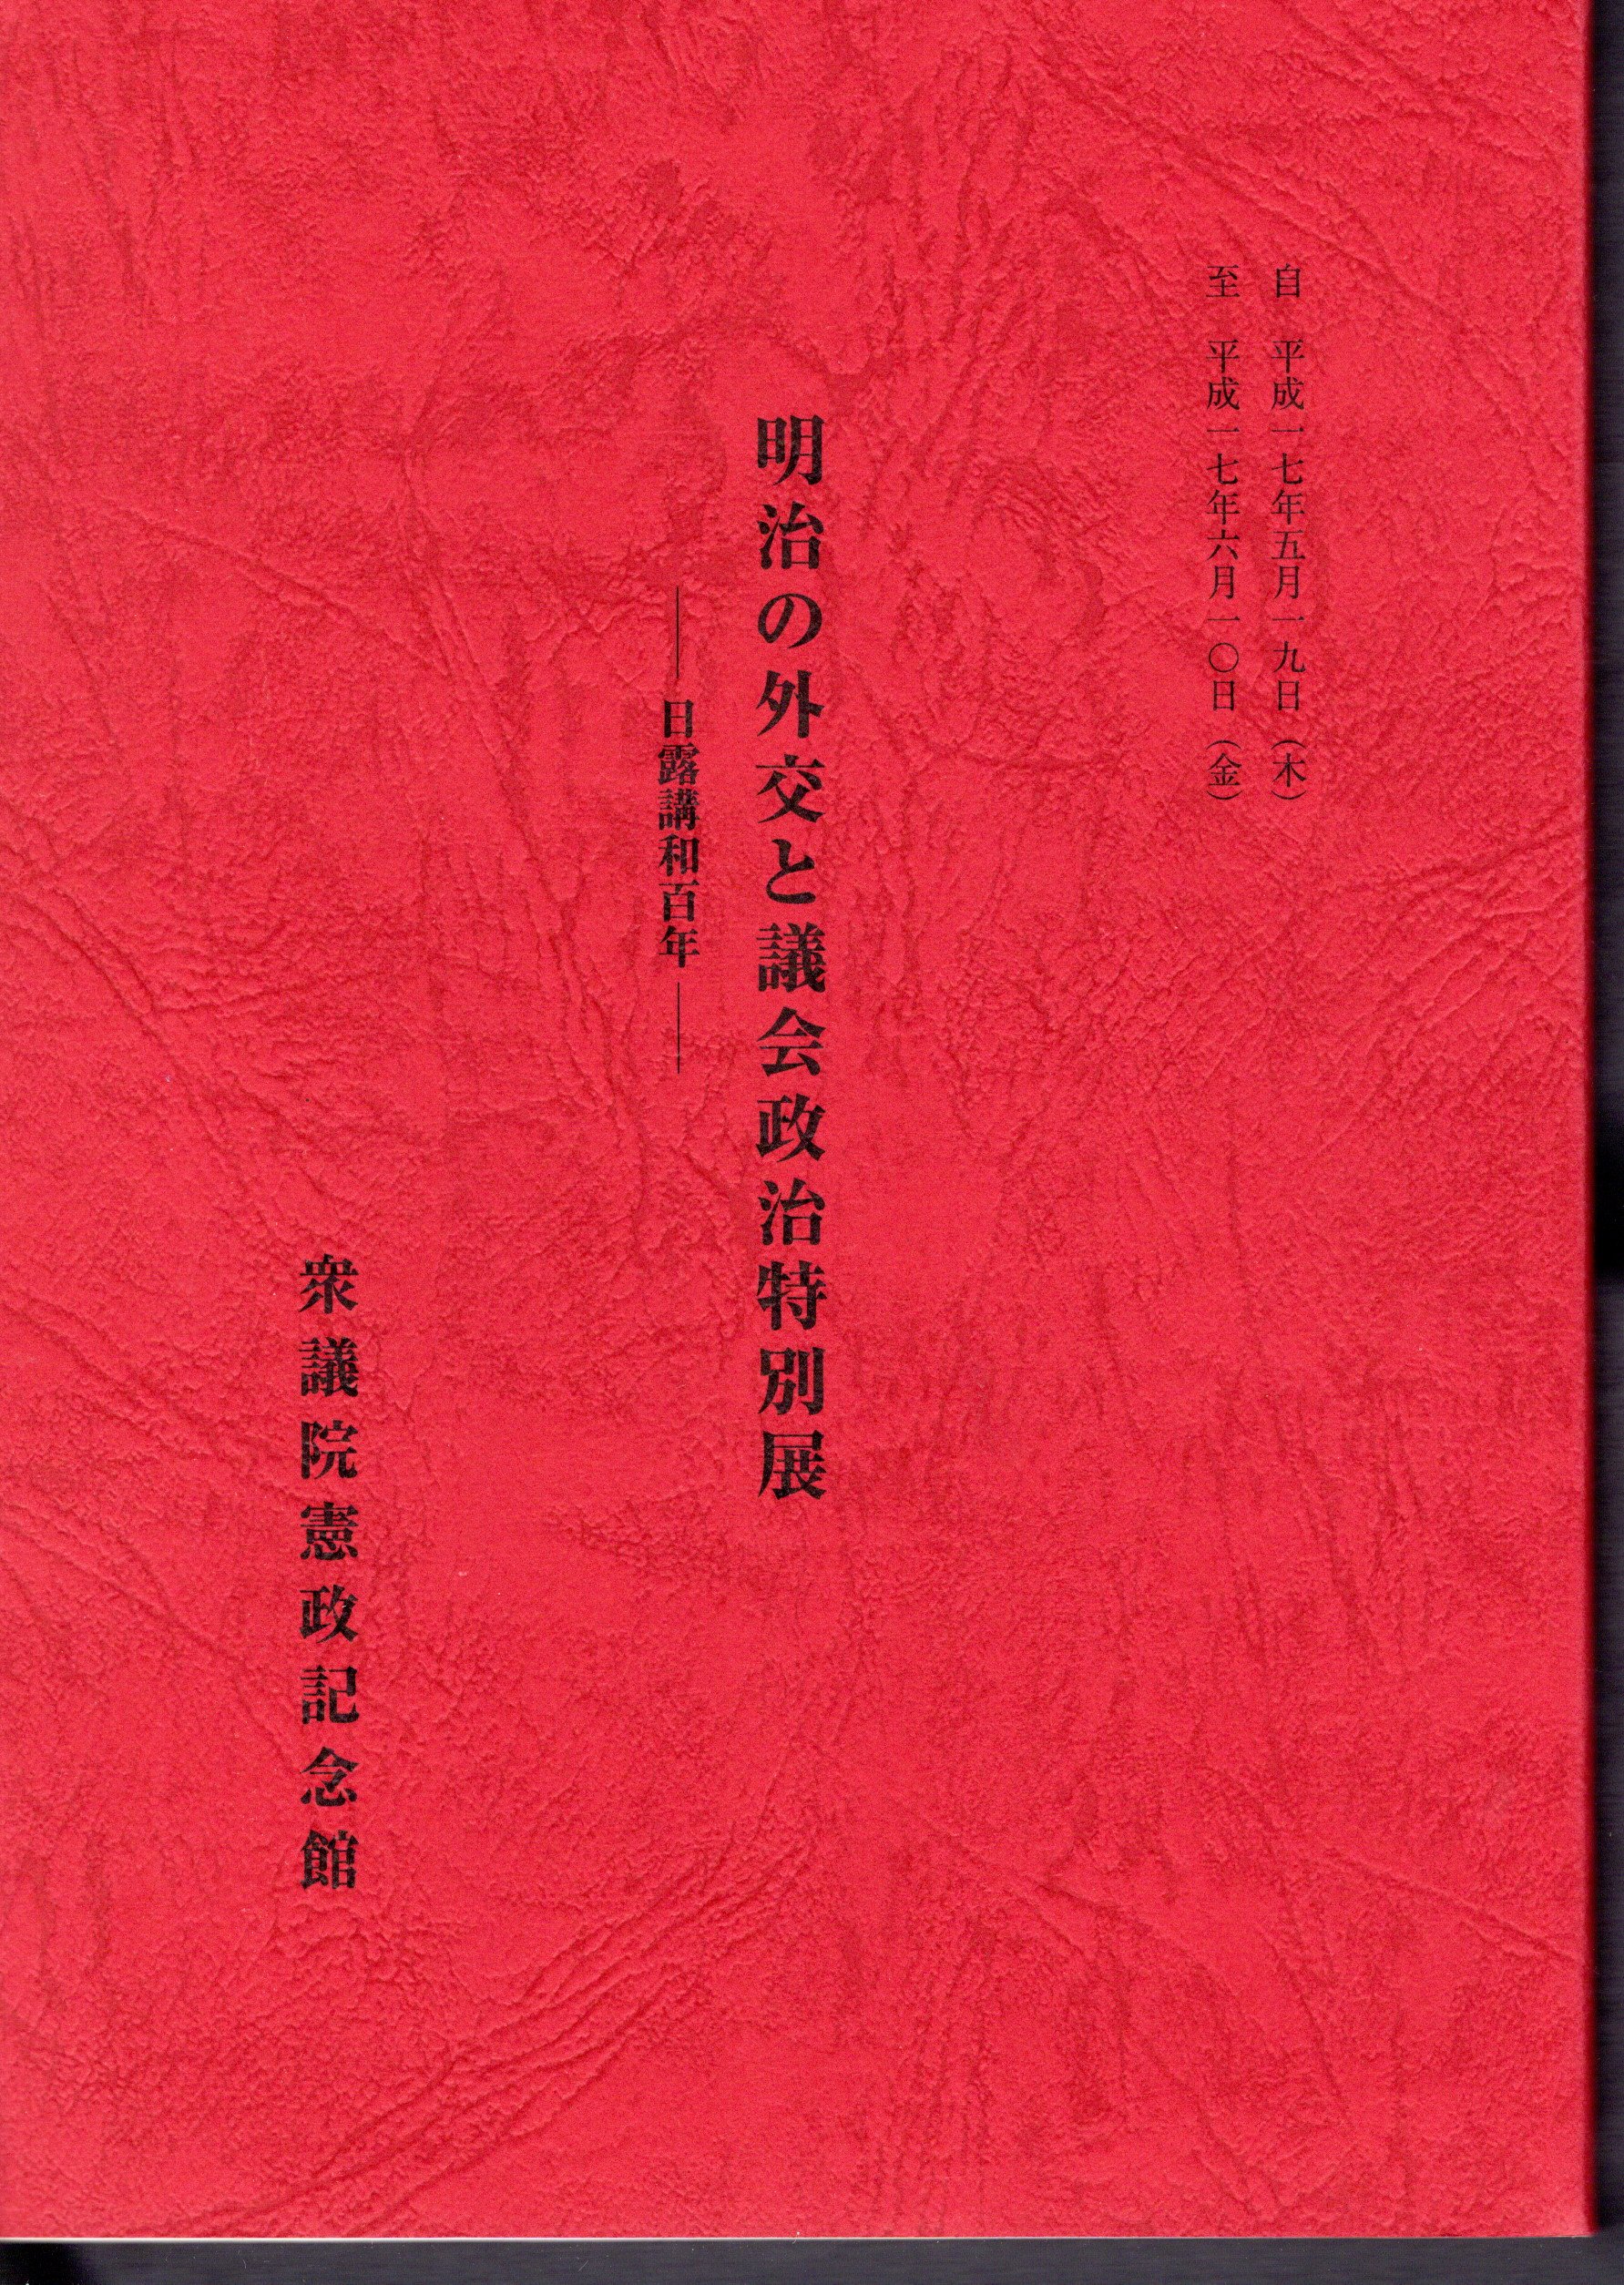 自　平成一七年五月一九日（木）
至　平成一七年六月一〇日（金）
明治の外交と議会政治特別展
――日露講和百年――
衆議院憲政記念館